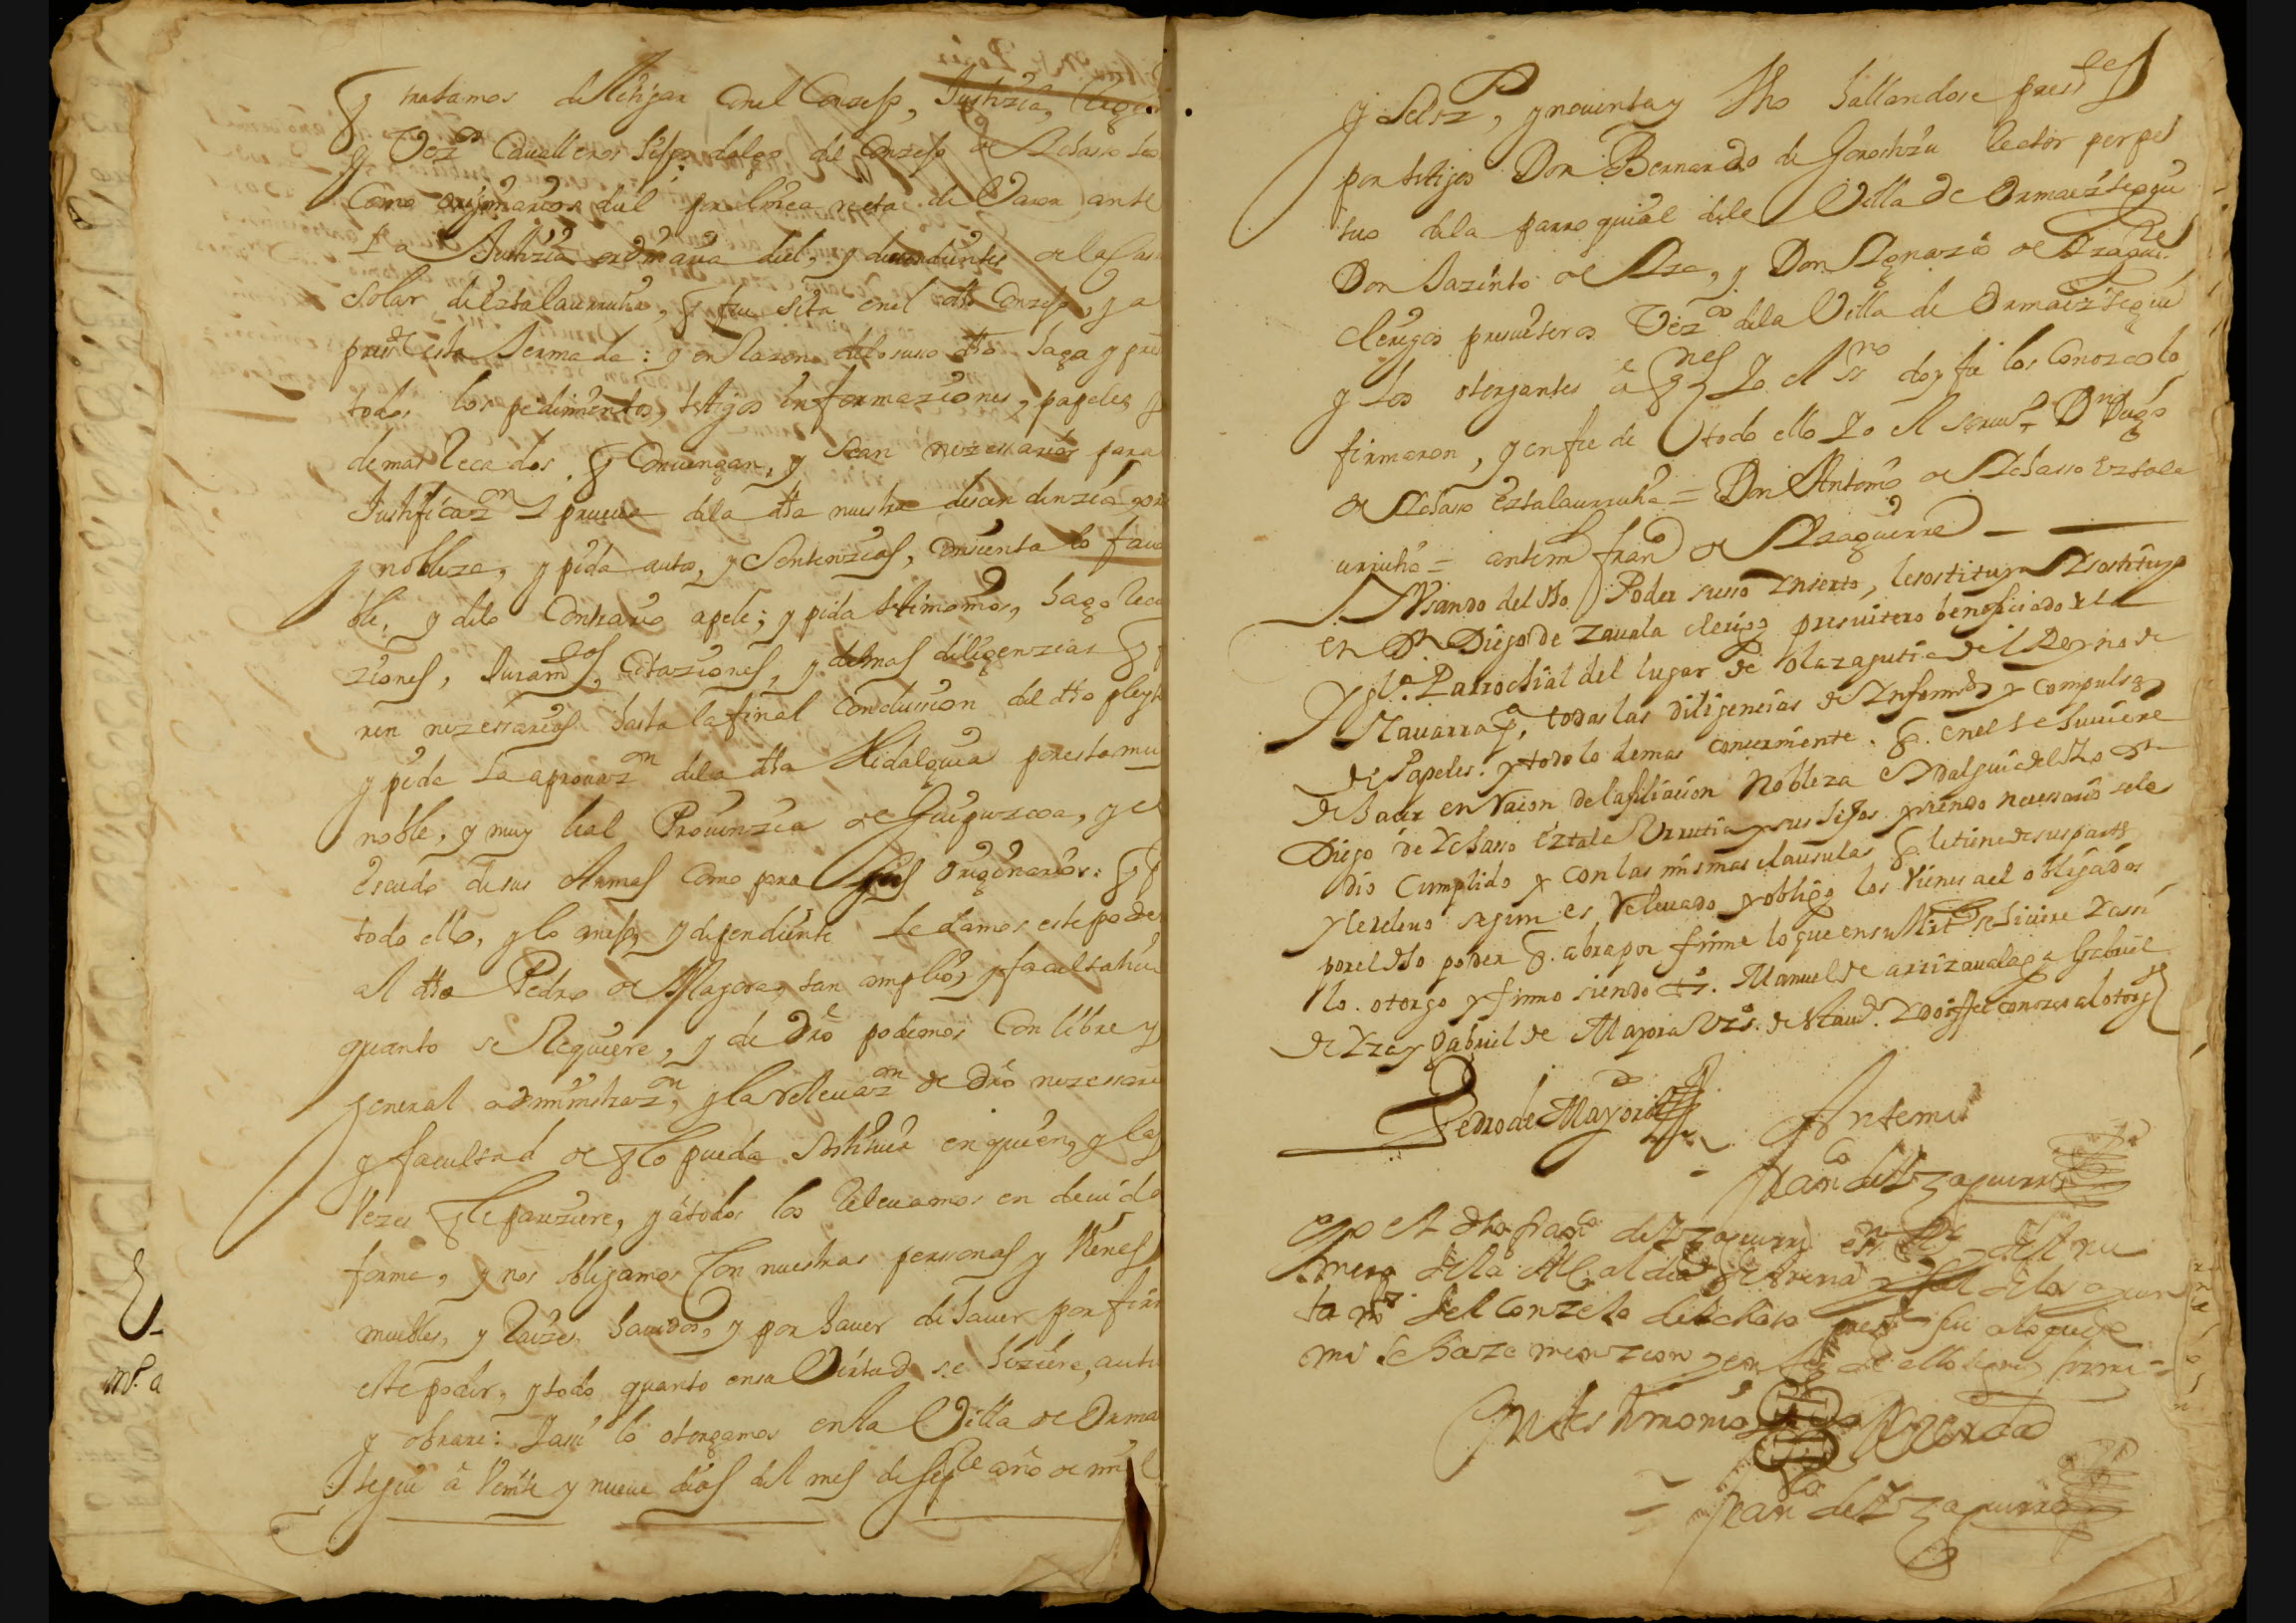 q tratamos de litigar Con el Conzejo, Justizia, Regi
y Vezos Cavalleros hijos dalgo del Conzejo de Ichasso
Como originarios del por linea recta de Varon ante
La Justizia ordinaria del, y dezendientes de la Casa
Solar de Eztalaurrutia, q fue sita en el dho Conzejo, y a
presste esta Sermada: y en Razon delo suso dho haga y pre
todos los pedimentos, testigos informaziones, papeles q
demas Recados q Convengan, y Sean nezessarios para
Justificazon y prueva dela dha nuestra deszendenzia
y nobleza, y pida autos, y Sentenzias, consienta lo favo
ble, y delo Contrario apele; y pida testimonios, haga Recu
ziones, Juramtos, Citaziones, y demas diligenzias q f
ren nezessarias hasta la final Conclussion del dho pleyto
y pida La aprovazon dela dha Hidalguia por esta muy
noble, y muy leal Provinzia de Guipuzcoa, y el
Escudo de sus Armas Como para Sus originarios: q p
todo ello, y lo anejo, y dependiente le damos este poder
al dho Pedro de Mayora, tan amplio, y facultativo
quanto se Requiere, y de dro podemos Con libre y
general administrazon, y la relevazon de dro nezessaria
y facultad de q lo pueda sostituir en quien, y las
Vezes q le pareziere, y a todos los Relevamos en devida
forma, y nos obligamos Con nuestras personas y Vienes
muebles, y Raizes havidos, y por haver de haver por firm
este poder, y todo quanto en su Virtud se hiziere, autu
y obrare: Y assi lo otorgamos en la Villa de Orma
steguí à Veinte y nueve dias del mes de Sepre año de mil
E
y Seisz, y noventa y ocho hallandose presstes
por testigos Don Bernardo de Gorostizu Rector perpe
tuo dela parroquial dela Villa de Ormaiztegui
Don Jazinto de Yza, y Don Ygnazio de Yzaguirre
clerigos presviteros Vezos dela Villa de Ormaiztegui
y Los otorgantes à qnes Yo el Ssno doy fe los Conozco lo
firmaron, y en fee de todo ello Yo el Scrivo Dn Diego
de Ichasso Eztalaurrutia = Don Antonio de Ichasso Eztala
urrutia = antemi Franco de Yzaguirre
Usando del dho Poder suso Inserto, le sostituyo y sostituyo
en Dn Diego de Zavala clerigo presvitero beneficiado de la
Yglª Parrochial del lugar de olazagutia del Reyno de
Navarra pª todas las diligencias de Informon y compulsa
de Papeles. y todo lo demas concerniente q en el se huviere
de hacer en racon de la filiacion Nobleza e Ydalguia del dho Dn
Diego de Ychasso Eztala Urrutia y sus hijos y siendo necessario sele
dio Cumplido y con las mismas clausulas q le tiene de sus partes
y le relevo segun es Relevado y obligo los Vienes a el obligados
por el dho poder q abra por firme lo que en su Virtd se hiciere Y assi
lo otorgo y firmo siendo ts. Manuel de arrizavalaga Gabriel
de Yza y Gabriel de Mayora Vzs. de Y doy fee conozco al otorgte
Pedro de Mayora
Antemi
Franco de Yzaguirre
Yo el dho Franco de Yzaguirre esno del nu
mero dela Alcaldia de Arería y fiel delos ayun
tamtos del Conzejo de Ichaso presste fui alo que de
mi se haze menzion y en fee de ello signe y firme =
En testimonio de Verdad
Franco de Yzaguirre